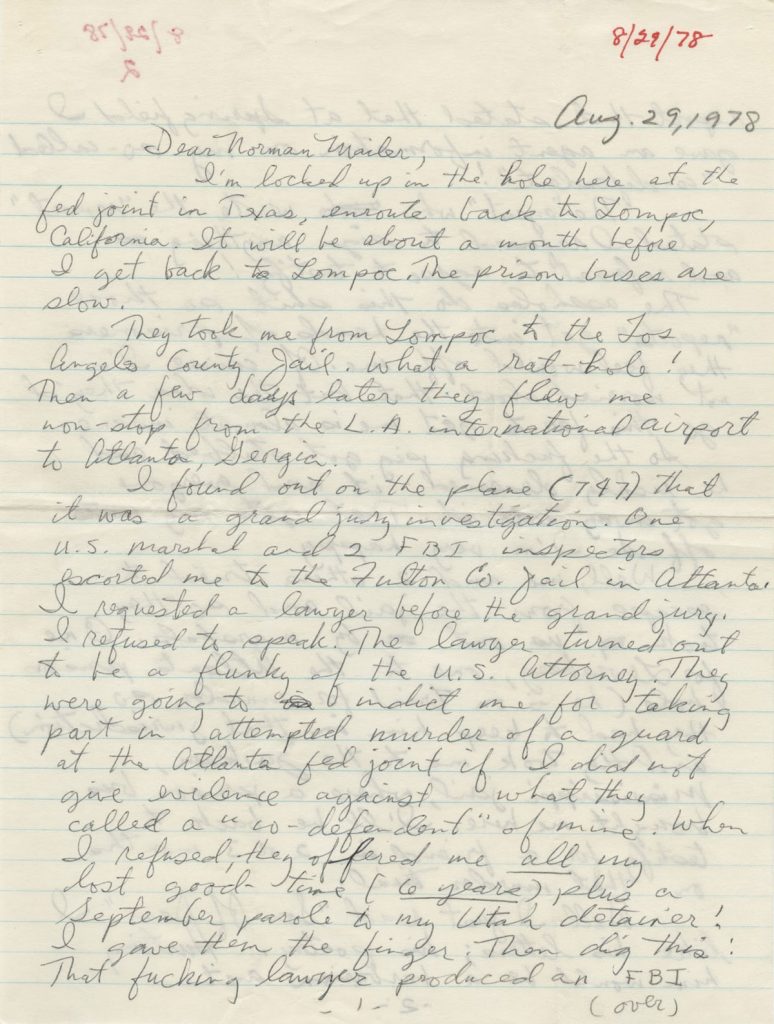 8/29/78
Aug. 29, 1978
Dear Norman Mailer,
I'm locked up in the hole here at the
fed joint in Texas, enroute back to Lompoc,
California. It will be about a month before
I get back to Lompoc. The prison buses are
slow.
They took me from Lompoc to the Los
Angeles County Jail. What a rat-hole!
Then a few days later they flew me
non-stop from the L.A. international airport
to Atlanta, Georgia.
I found out on the plane (747) that
it was a grand jury investigation. One
U.S. marshal and 2 FBI inspectors
escorted me to the Fulton Co. Jail in Atlanta.
I requested a lawyer before the grand jury.
I refused to speak. The lawyer turned out
to be a flunky of the U.S. Attorney. They
were going to indict me for taking
part in attempted murder of a guard
at the Atlanta fed joint if I did not
give evidence against what they
called a "co-defendent" of mine. When
I refused, they offered me all my
lost good-time (6 years) plus a
September parole to my Utah detainer!
I gave them the finger. Then dig this:
That fucking lawyer produced an FBI
(over)
-1-